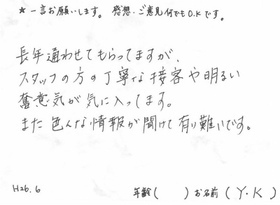 *一言お願いします。 発想・ご意見何でもO.Kです。
長年通わせてもらってますが、
スタッフの方の丁寧な接客や明るい
奮意気が気に入ってます。
また色んな情報が聞けて有り難いです。
H26.6 年齢( ) お名前(Y.K)